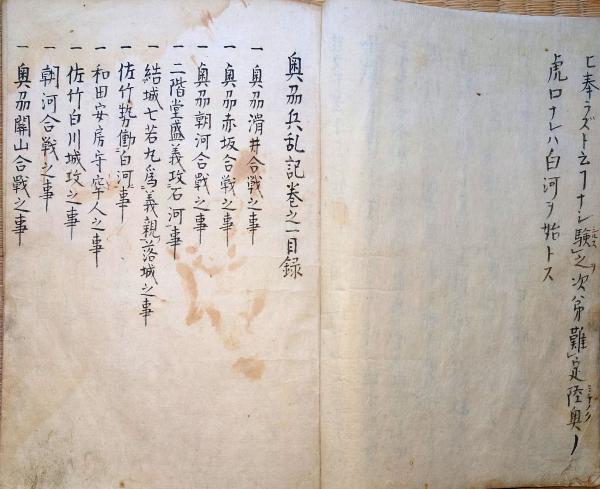 ヒ奉ラズト云フナシ験之次第難定陸奥ノ
シルス ヲ
ミチノク
虎口ナレハ白河ヲ始トス
奥刕兵乱記巻之一目録
一 奥刕滑井合戦之事
一 奥刕赤坂合戦之事
一 奥刕朝河合戦之事
一 二階堂盛義攻石河事
一 結城七若丸為義親落城之事
一 佐竹勢働白河事
一 和田安房守牢人之事
一 佐竹白川城攻之事
一 朝河合戦之事
一 奥刕關山合戦之事